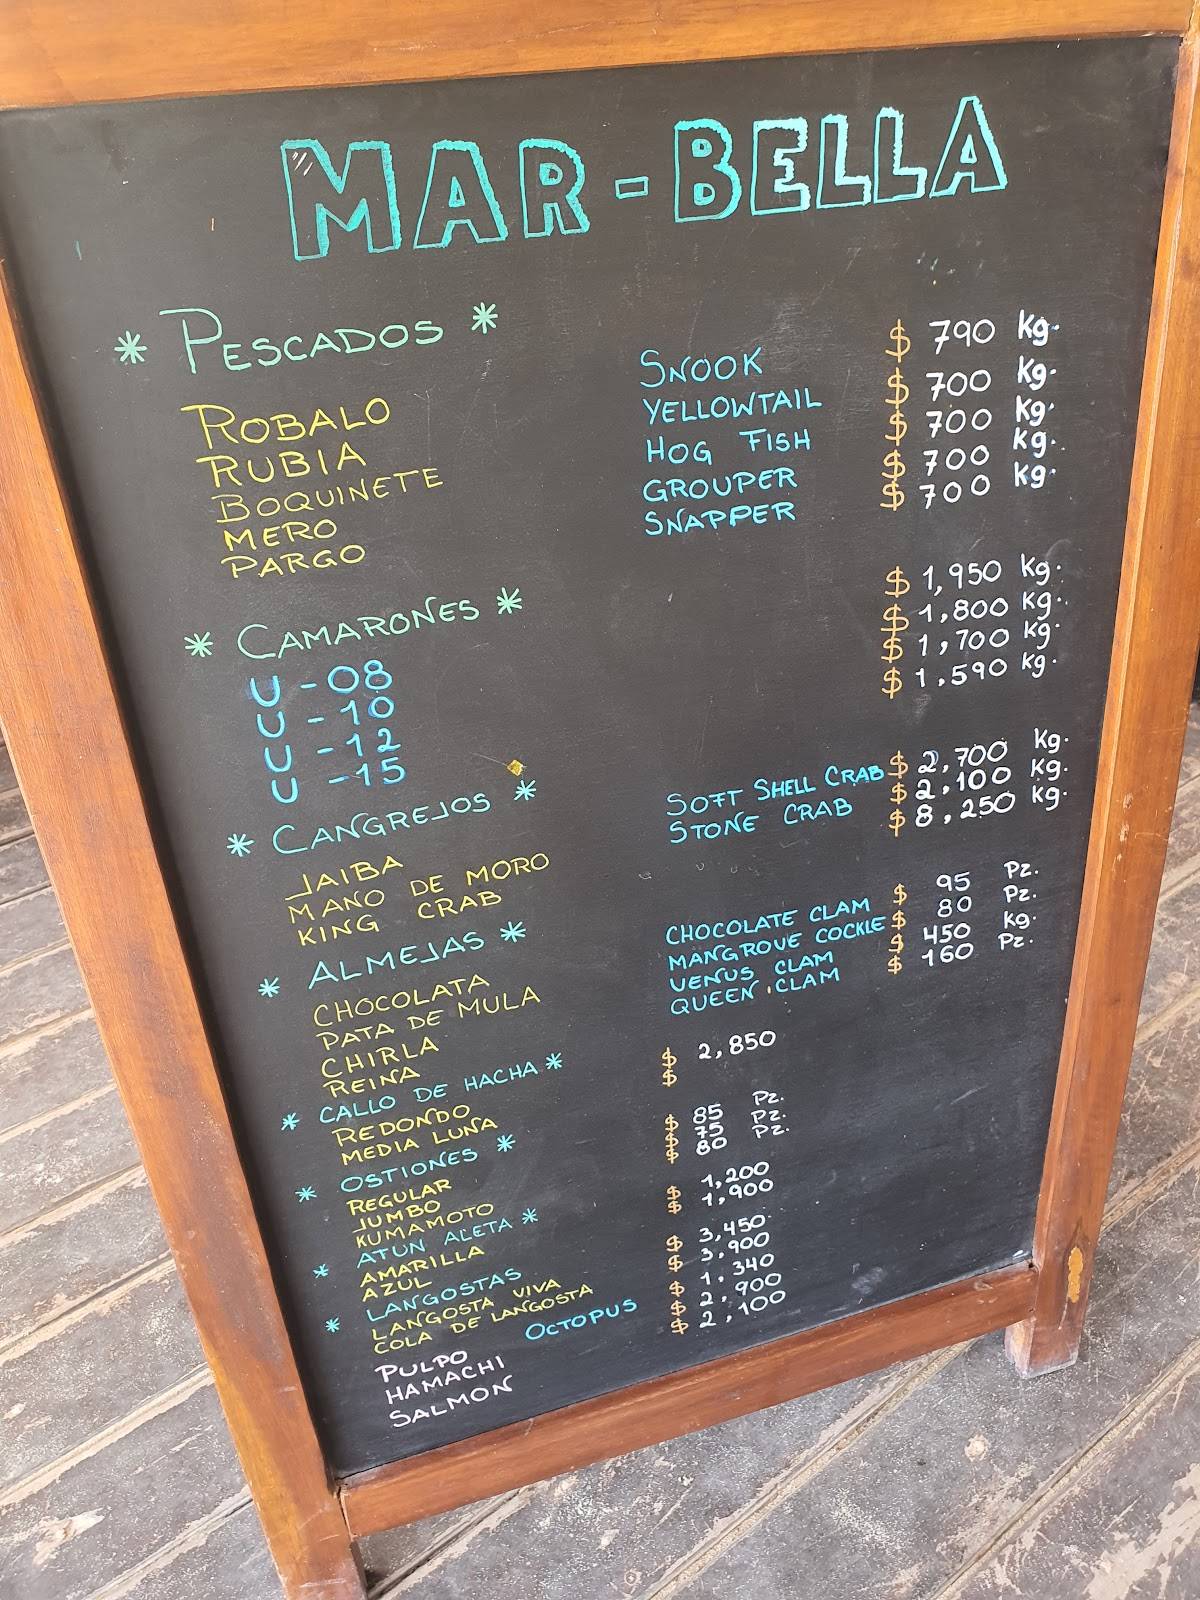 MAR-BELLA
* PESCADOS *
ROBALO SNOOK $ 790 Kg.
RUBIA YELLOWTAIL $ 700 Kg.
BOQUINETE HOG FISH $ 700 Kg.
MERO GROUPER $ 700 Kg.
PARGO SNAPPER $ 700 Kg.
* CAMARONES *
U-08 $ 1,950 Kg.
U-10 $ 1,800 Kg.
U-12 $ 1,700 Kg.
U-15 $ 1,590 Kg.
* CANGREJOS *
JAIBA SOFT SHELL CRAB $ 2,700 Kg.
MANO DE MORO STONE CRAB $ 2,100 Kg.
KING CRAB $ 8,250 Kg.
* ALMEJAS *
CHOCOLATA CHOCOLATE CLAM $ 95 Pz.
PATA DE MULA MANGROVE COCKLE $ 80 Pz.
CHIRLA VENUS CLAM $ 450 Kg.
REINA QUEEN CLAM $ 160 Pz.
* CALLO DE HACHA *
REDONDO $ 2,850
MEDIA LUNA $
* OSTIONES *
REGULAR $ 85 Pz.
JUMBO $ 75 Pz.
KUMAMOTO $ 80 Pz.
* ATUN ALETA *
AMARILLA $ 1,200
AZUL $ 1,900
* LANGOSTAS
LANGOSTA VIVA $ 3,450
COLA DE LANGOSTA $ 3,900
PULPO OCTOPUS $ 1,340
HAMACHI $ 2,900
SALMON $ 2,100